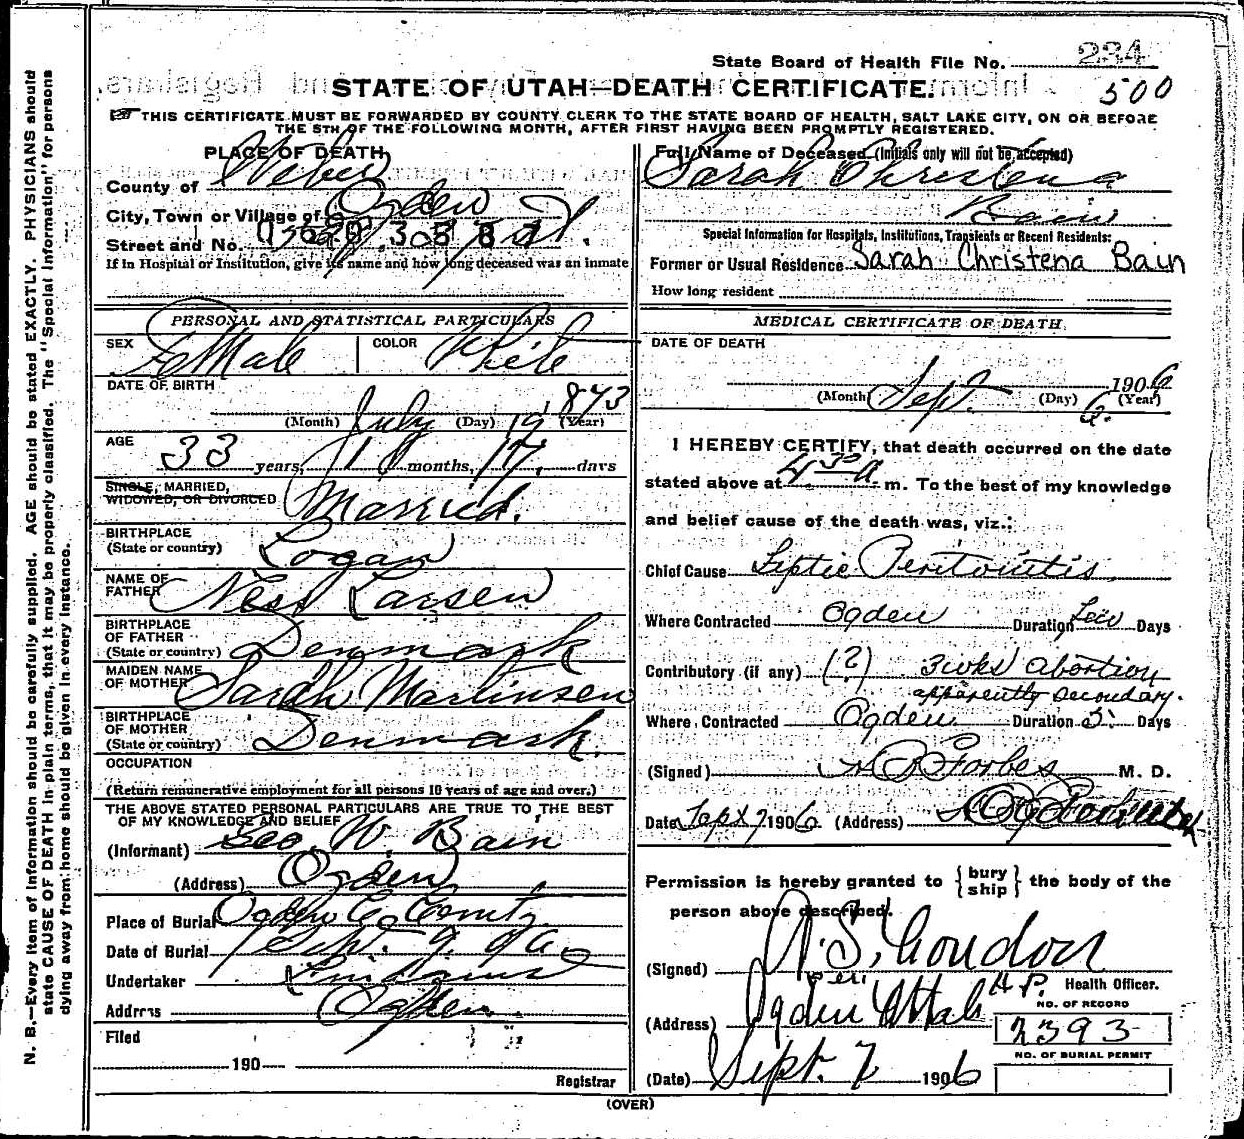 State Board of Health File No. 234
STATE OF UTAH—DEATH CERTIFICATE.
500
THIS CERTIFICATE MUST BE FORWARDED BY COUNTY CLERK TO THE STATE BOARD OF HEALTH, SALT LAKE CITY, ON OR BEFORE
THE 5TH OF THE FOLLOWING MONTH, AFTER FIRST HAVING BEEN PROMPTLY REGISTERED.
PLACE OF DEATH
County of Weber
City, Town or Village of Ogden
Street and No. St.
If in Hospital or Institution, give its name and how long deceased was an inmate
PERSONAL AND STATISTICAL PARTICULARS
SEX Female COLOR White
DATE OF BIRTH
July 19 1873
(Month) (Day) (Year)
AGE
33 years, 1 months, 17 days
SINGLE, MARRIED,
WIDOWED, OR DIVORCED Married.
BIRTHPLACE
(State or country) Logan
NAME OF
FATHER Larsen
BIRTHPLACE
OF FATHER
(State or country) Denmark
MAIDEN NAME
OF MOTHER Sarah Martinsen
BIRTHPLACE
OF MOTHER
(State or country) Denmark.
OCCUPATION
(Return remunerative employment for all persons 10 years of age and over.)
THE ABOVE STATED PERSONAL PARTICULARS ARE TRUE TO THE BEST
OF MY KNOWLEDGE AND BELIEF
(Informant) Geo W. Bain
(Address) Ogden
Place of Burial Ogden C. Cemty
Date of Burial Sept. 9, 06
Undertaker
Address Ogden.
Filed
190
Registrar
Full Name of Deceased (Initials only will not be accepted)
Sarah Christena
Bain
Special Information for Hospitals, Institutions, Transients or Recent Residents:
Former or Usual Residence Sarah Christena Bain
How long resident
MEDICAL CERTIFICATE OF DEATH
DATE OF DEATH
Sept. 6. 1906
(Month) (Day) (Year)
I HEREBY CERTIFY, that death occurred on the date
stated above at 4 30 a m. To the best of my knowledge
and belief cause of the death was, viz.:
Chief Cause Septic Peritonitis
Where Contracted Ogden Duration Few Days
Contributory (if any) (?) 3 wks abortion
apparently secondary.
Where Contracted Ogden Duration 5 Days
(Signed) Forbes M. D.
Date Sept 7 1906 (Address) Ogden
Permission is hereby granted to { bury ship } the body of the
person above described.
(Signed) A. S. Condon
Health Officer.
Per H. P.
(Address) Ogden Utah
NO. OF RECORD
2393
NO. OF BURIAL PERMIT
(Date) Sept. 7 1906
(OVER)
N. B.—Every item of information should be carefully supplied. AGE should be stated EXACTLY. PHYSICIANS should
state CAUSE OF DEATH in plain terms, that it may be properly classified. The "Special Information" for persons
dying away from home should be given in every instance.